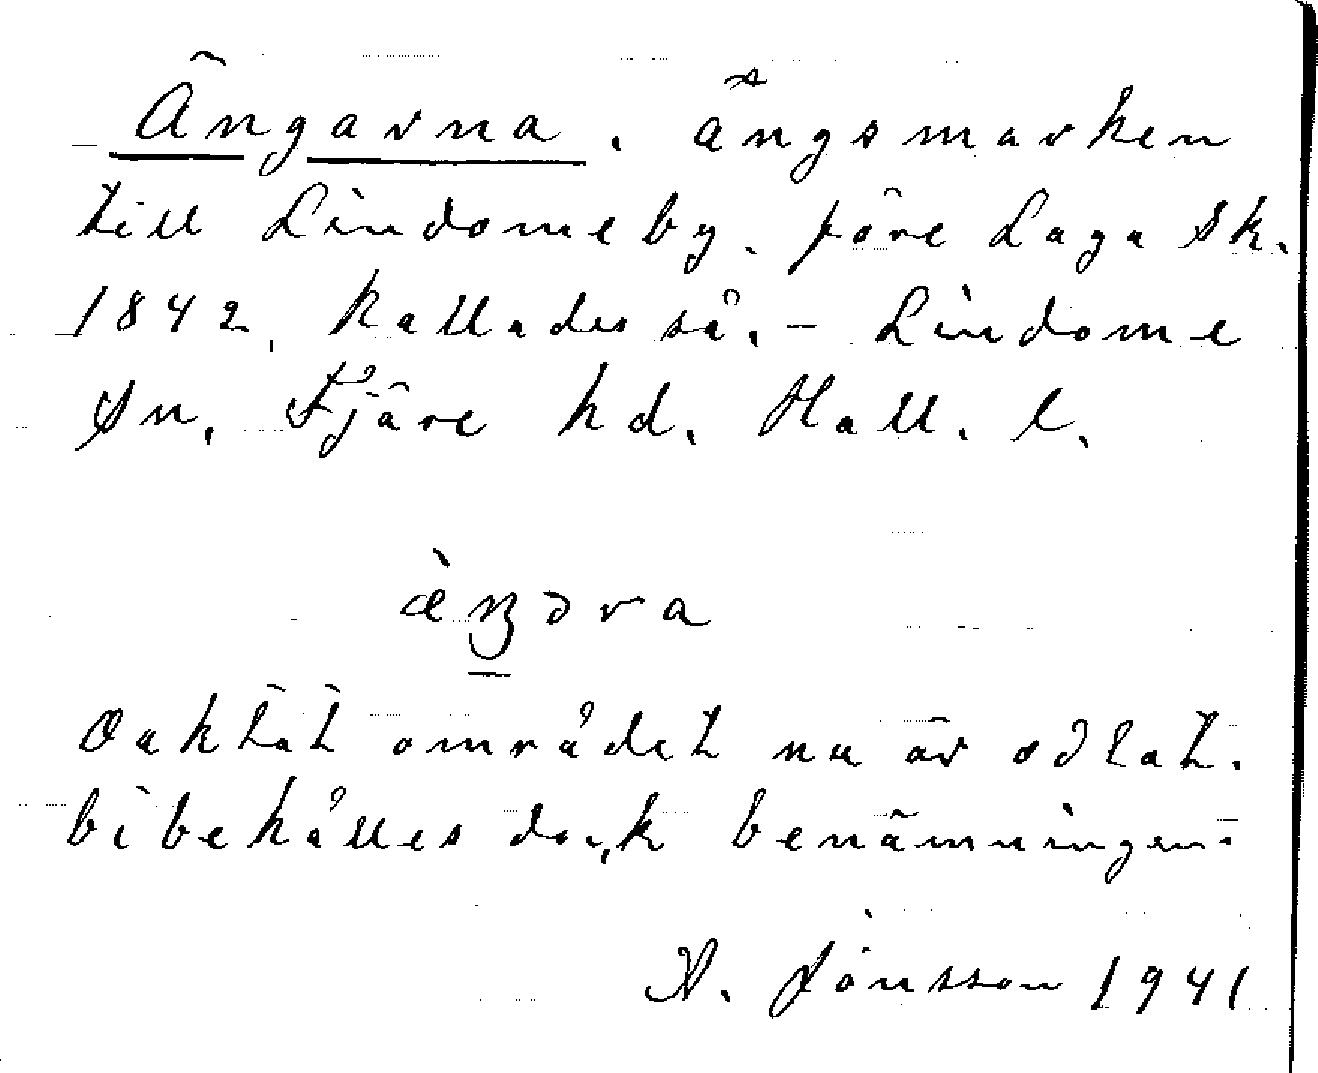 Ängarna. ängsmarken
till Lindomeby. före Laga Sk.
1842, kallades så. – Lindome
Sn. Fjäre hd. Hall. l.
Oaktat området nu är odlat.
bibehålles dock benämningen.
N. Jönsson 1941